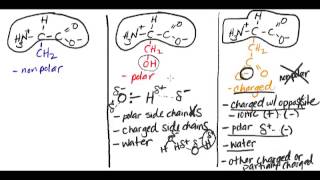 H₃N⁺-C-C-O⁻
H
O
CH₂
- nonpolar
H₃N⁺-C-C-O⁻
H
O
CH₂
OH
- polar
δ⁻ O: H δ⁺ δ⁻
- polar side chains
- charged side chains
- water
H₃N⁺-C-C-O⁻
H
O
CH₂
nonpolar
- charged
- charged w/ opposite
- ionic (+) (-)
- polar δ⁺ (-)
- water
- other charged or
partially charged